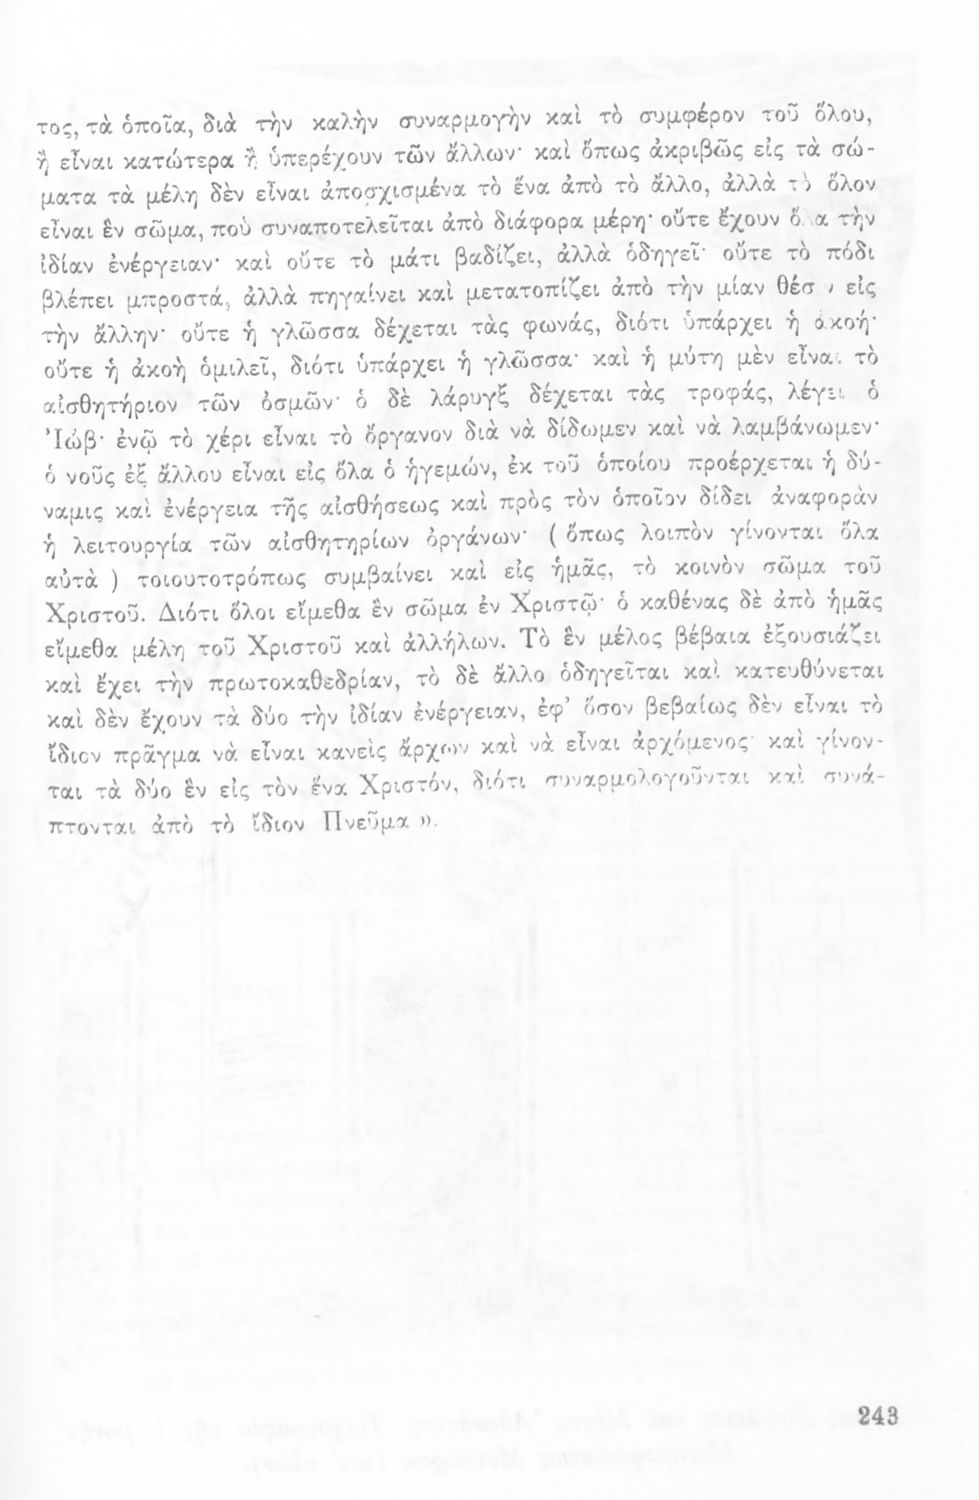 τος, τὰ ὁποῖα, διὰ τὴν καλὴν συναρμογὴν καὶ τὸ συμφέρον τοῦ ὅλου,
ἢ εἶναι κατώτερα ἢ ὑπερέχουν τῶν ἄλλων· καὶ ὅπως ἀκριβῶς εἰς τὰ σώ-
ματα τὰ μέλη δὲν εἶναι ἀποσχισμένα τὸ ἕνα ἀπὸ τὸ ἄλλο, ἀλλὰ τὸ ὅλον
εἶναι ἓν σῶμα, ποὺ συναποτελεῖται ἀπὸ διάφορα μέρη· οὔτε ἔχουν ὅλα τὴν
ἰδίαν ἐνέργειαν· καὶ οὔτε τὸ μάτι βαδίζει, ἀλλὰ ὁδηγεῖ· οὔτε τὸ πόδι
βλέπει μπροστά, ἀλλὰ πηγαίνει καὶ μετατοπίζει ἀπὸ τὴν μίαν θέσι εἰς
τὴν ἄλλην· οὔτε ἡ γλῶσσα δέχεται τὰς φωνάς, διότι ὑπάρχει ἡ ἀκοή·
οὔτε ἡ ἀκοὴ ὁμιλεῖ, διότι ὑπάρχει ἡ γλῶσσα· καὶ ἡ μύτη μὲν εἶναι τὸ
αἰσθητήριον τῶν ὀσμῶν· ὁ δὲ λάρυγξ δέχεται τὰς τροφάς, λέγει ὁ
Ἰώβ· ἐνῷ τὸ χέρι εἶναι τὸ ὄργανον διὰ νὰ δίδωμεν καὶ νὰ λαμβάνωμεν·
ὁ νοῦς ἐξ ἄλλου εἶναι εἰς ὅλα ὁ ἡγεμών, ἐκ τοῦ ὁποίου προέρχεται ἡ δύ-
ναμις καὶ ἐνέργεια τῆς αἰσθήσεως καὶ πρὸς τὸν ὁποῖον δίδει ἀναφορὰν
ἡ λειτουργία τῶν αἰσθητηρίων ὀργάνων· ( ὅπως λοιπὸν γίνονται ὅλα
αὐτὰ ) τοιουτοτρόπως συμβαίνει καὶ εἰς ἡμᾶς, τὸ κοινὸν σῶμα τοῦ
Χριστοῦ. Διότι ὅλοι εἴμεθα ἓν σῶμα ἐν Χριστῷ· ὁ καθένας δὲ ἀπὸ ἡμᾶς
εἴμεθα μέλη τοῦ Χριστοῦ καὶ ἀλλήλων. Τὸ ἓν μέλος βέβαια ἐξουσιάζει
καὶ ἔχει τὴν πρωτοκαθεδρίαν, τὸ δὲ ἄλλο ὁδηγεῖται καὶ κατευθύνεται
καὶ δὲν ἔχουν τὰ δύο τὴν ἰδίαν ἐνέργειαν, ἐφ' ὅσον βεβαίως δὲν εἶναι τὸ
ἴδιον πρᾶγμα νὰ εἶναι κανεὶς ἄρχων καὶ νὰ εἶναι ἀρχόμενος· καὶ γίνον-
ται τὰ δύο ἓν εἰς τὸν ἕνα Χριστόν, διότι συναρμολογοῦνται καὶ συνά-
πτονται ἀπὸ τὸ ἴδιον Πνεῦμα ».
243